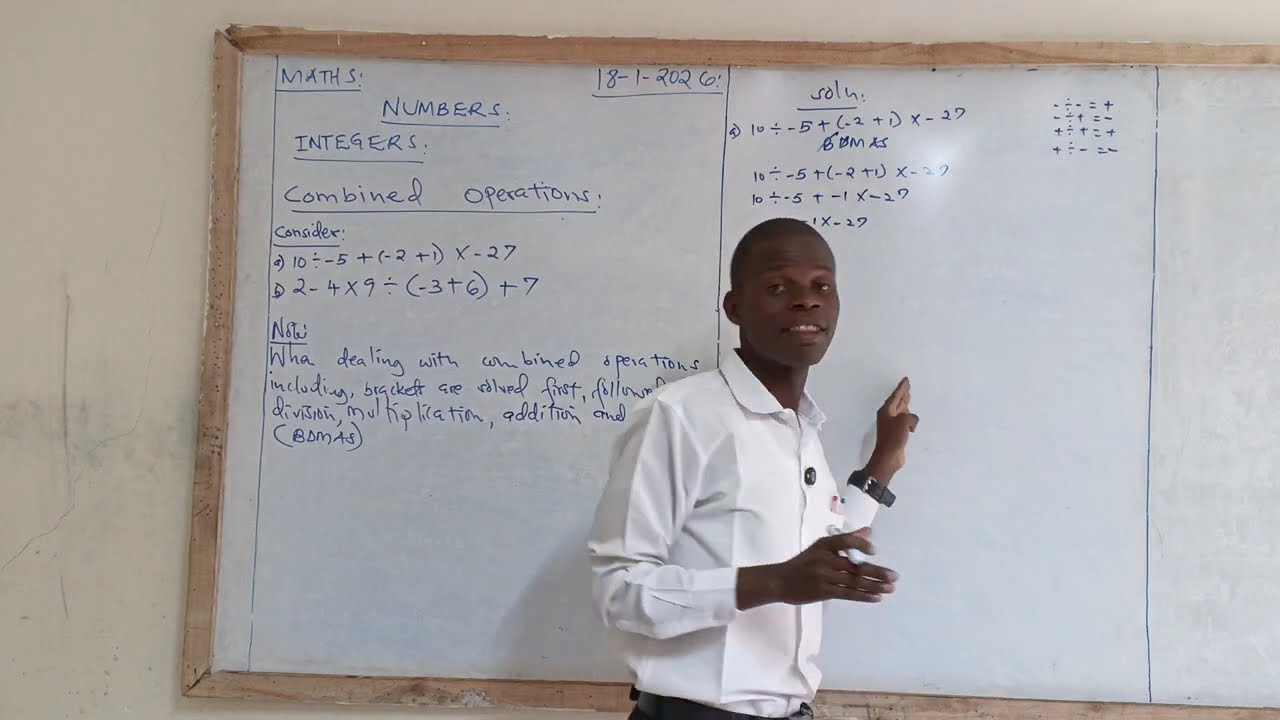 MATHS:
18-1-2026:
NUMBERS:
INTEGERS:
Combined Operations:
Consider:
a) 10 ÷ -5 + (-2 + 1) x -27
b) 2 - 4 x 9 ÷ (-3 + 6) + 7
Note:
Whe dealing with combined operations
including, brackets are solved first, followed
division, multiplication, addition and
(BDMAS)
soln:
a) 10 ÷ -5 + (-2 + 1) x -27
BDMAS
10 ÷ -5 + (-2 + 1) x -27
10 ÷ -5 + -1 x -27
-1 x -27
- ÷ - = +
- ÷ + = -
+ ÷ + = +
+ ÷ - = -